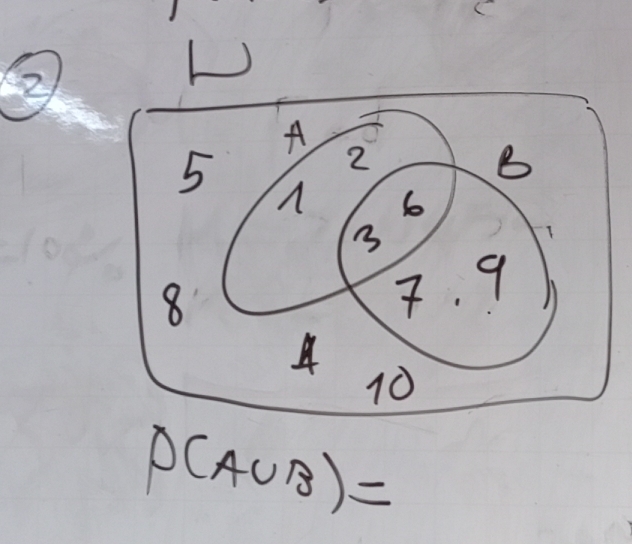 2
A
B
5
1
2
6
3
8
7 . 9
4
10
P(A∪B)=